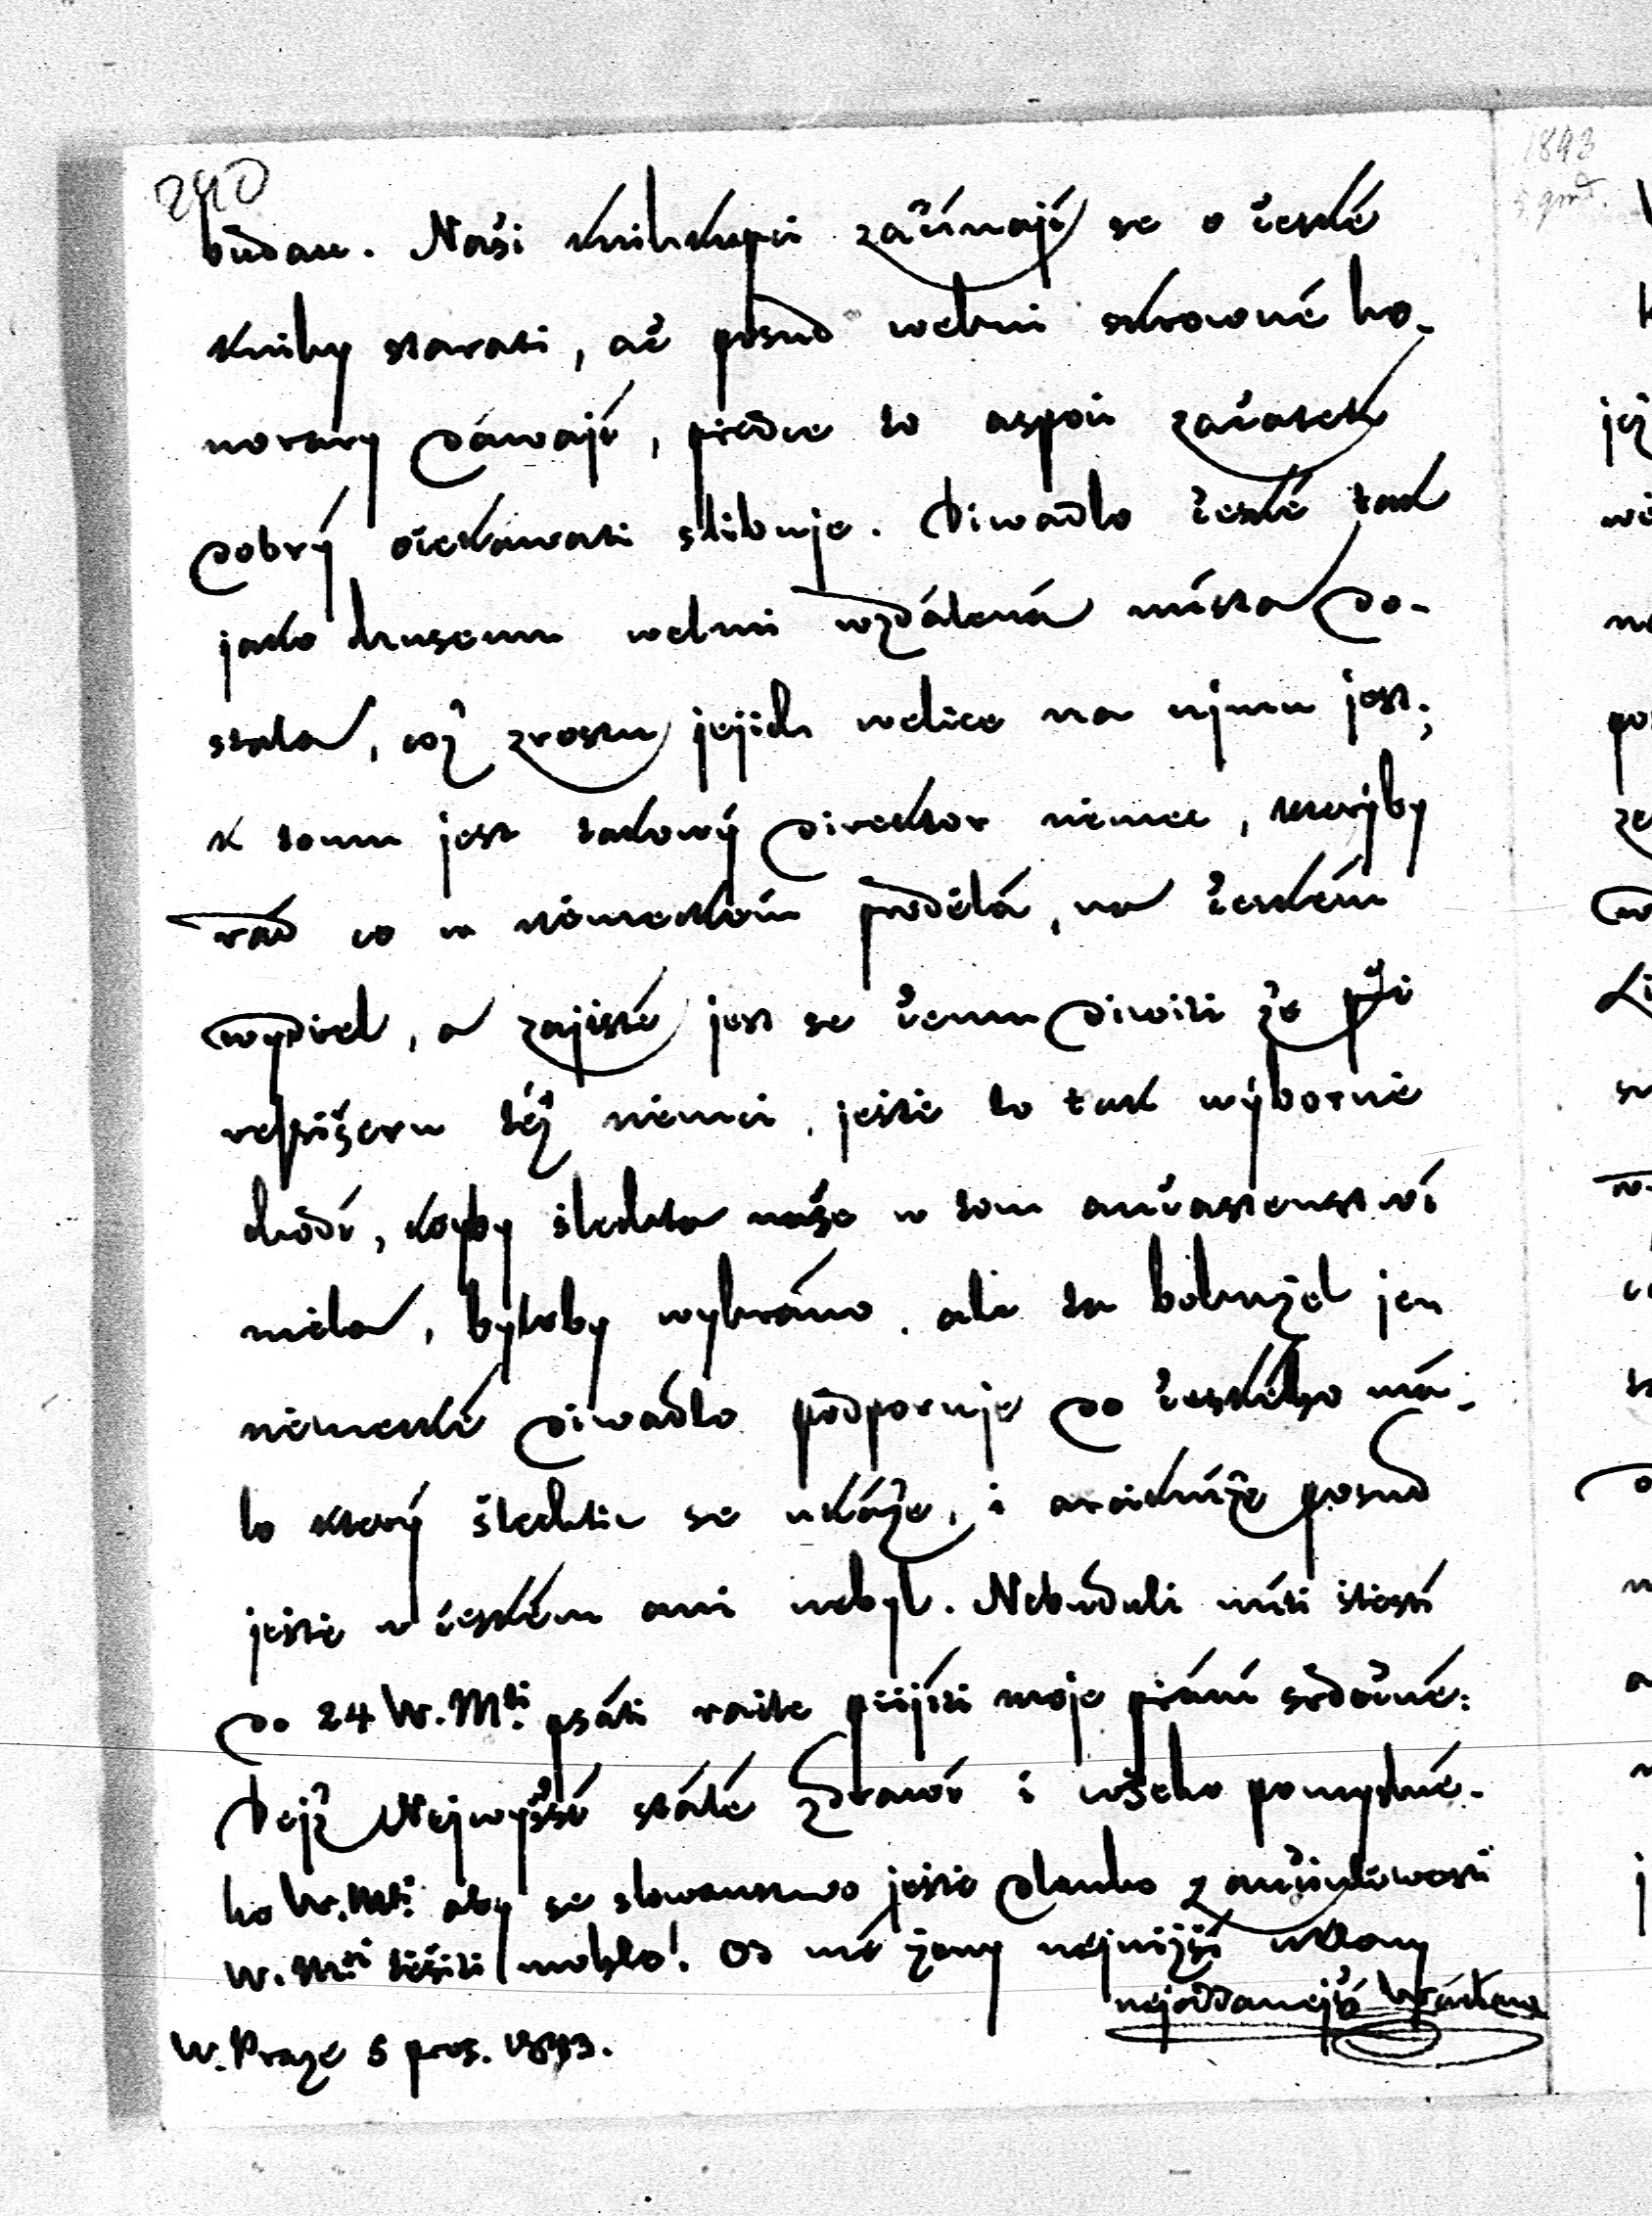 240
budau. Naši knihkupci začínají se o české
knihy starati, ač posud welmi skrowné ho-
norary dáwají, předce to aspoň začátek
dobrý očekáwati slibuje. Diwadlo české tak
jako Museum welmi wzdálená místa do-
stala, což zrostu jejich welice na ujmu jest;
k tomu jest takowý direktor němec, kterýby
rád co w německém prodělá, na českém
wydřel, a zajisté jest se čemu diwiti že při
režiseru též němci, ještě to tak wýborně
chodí, kdyby šlechta naše w tom aučastenstwí
měla, byloby wyhráno, ale ta bohužel jen
německé diwadlo podporuje do českého má-
lo který šlechtic se ukáže, i arcikníže posud
ještě w českém ani nebyl. Nebuduli míti štěstí
do 24 W. Mti psáti račte přijíti moje přání srdečné:
Dejž Nejwyšší stálé zdrawí i wšeho pomyslné-
ho W. Mti aby se slowanstwo ještě dlauho z aučinliwosti
W. Mti těšiti mohlo! Od mé ženy nejnižší uklony
nejoddanejší
W. Praze 5 pros. 1843.
1843